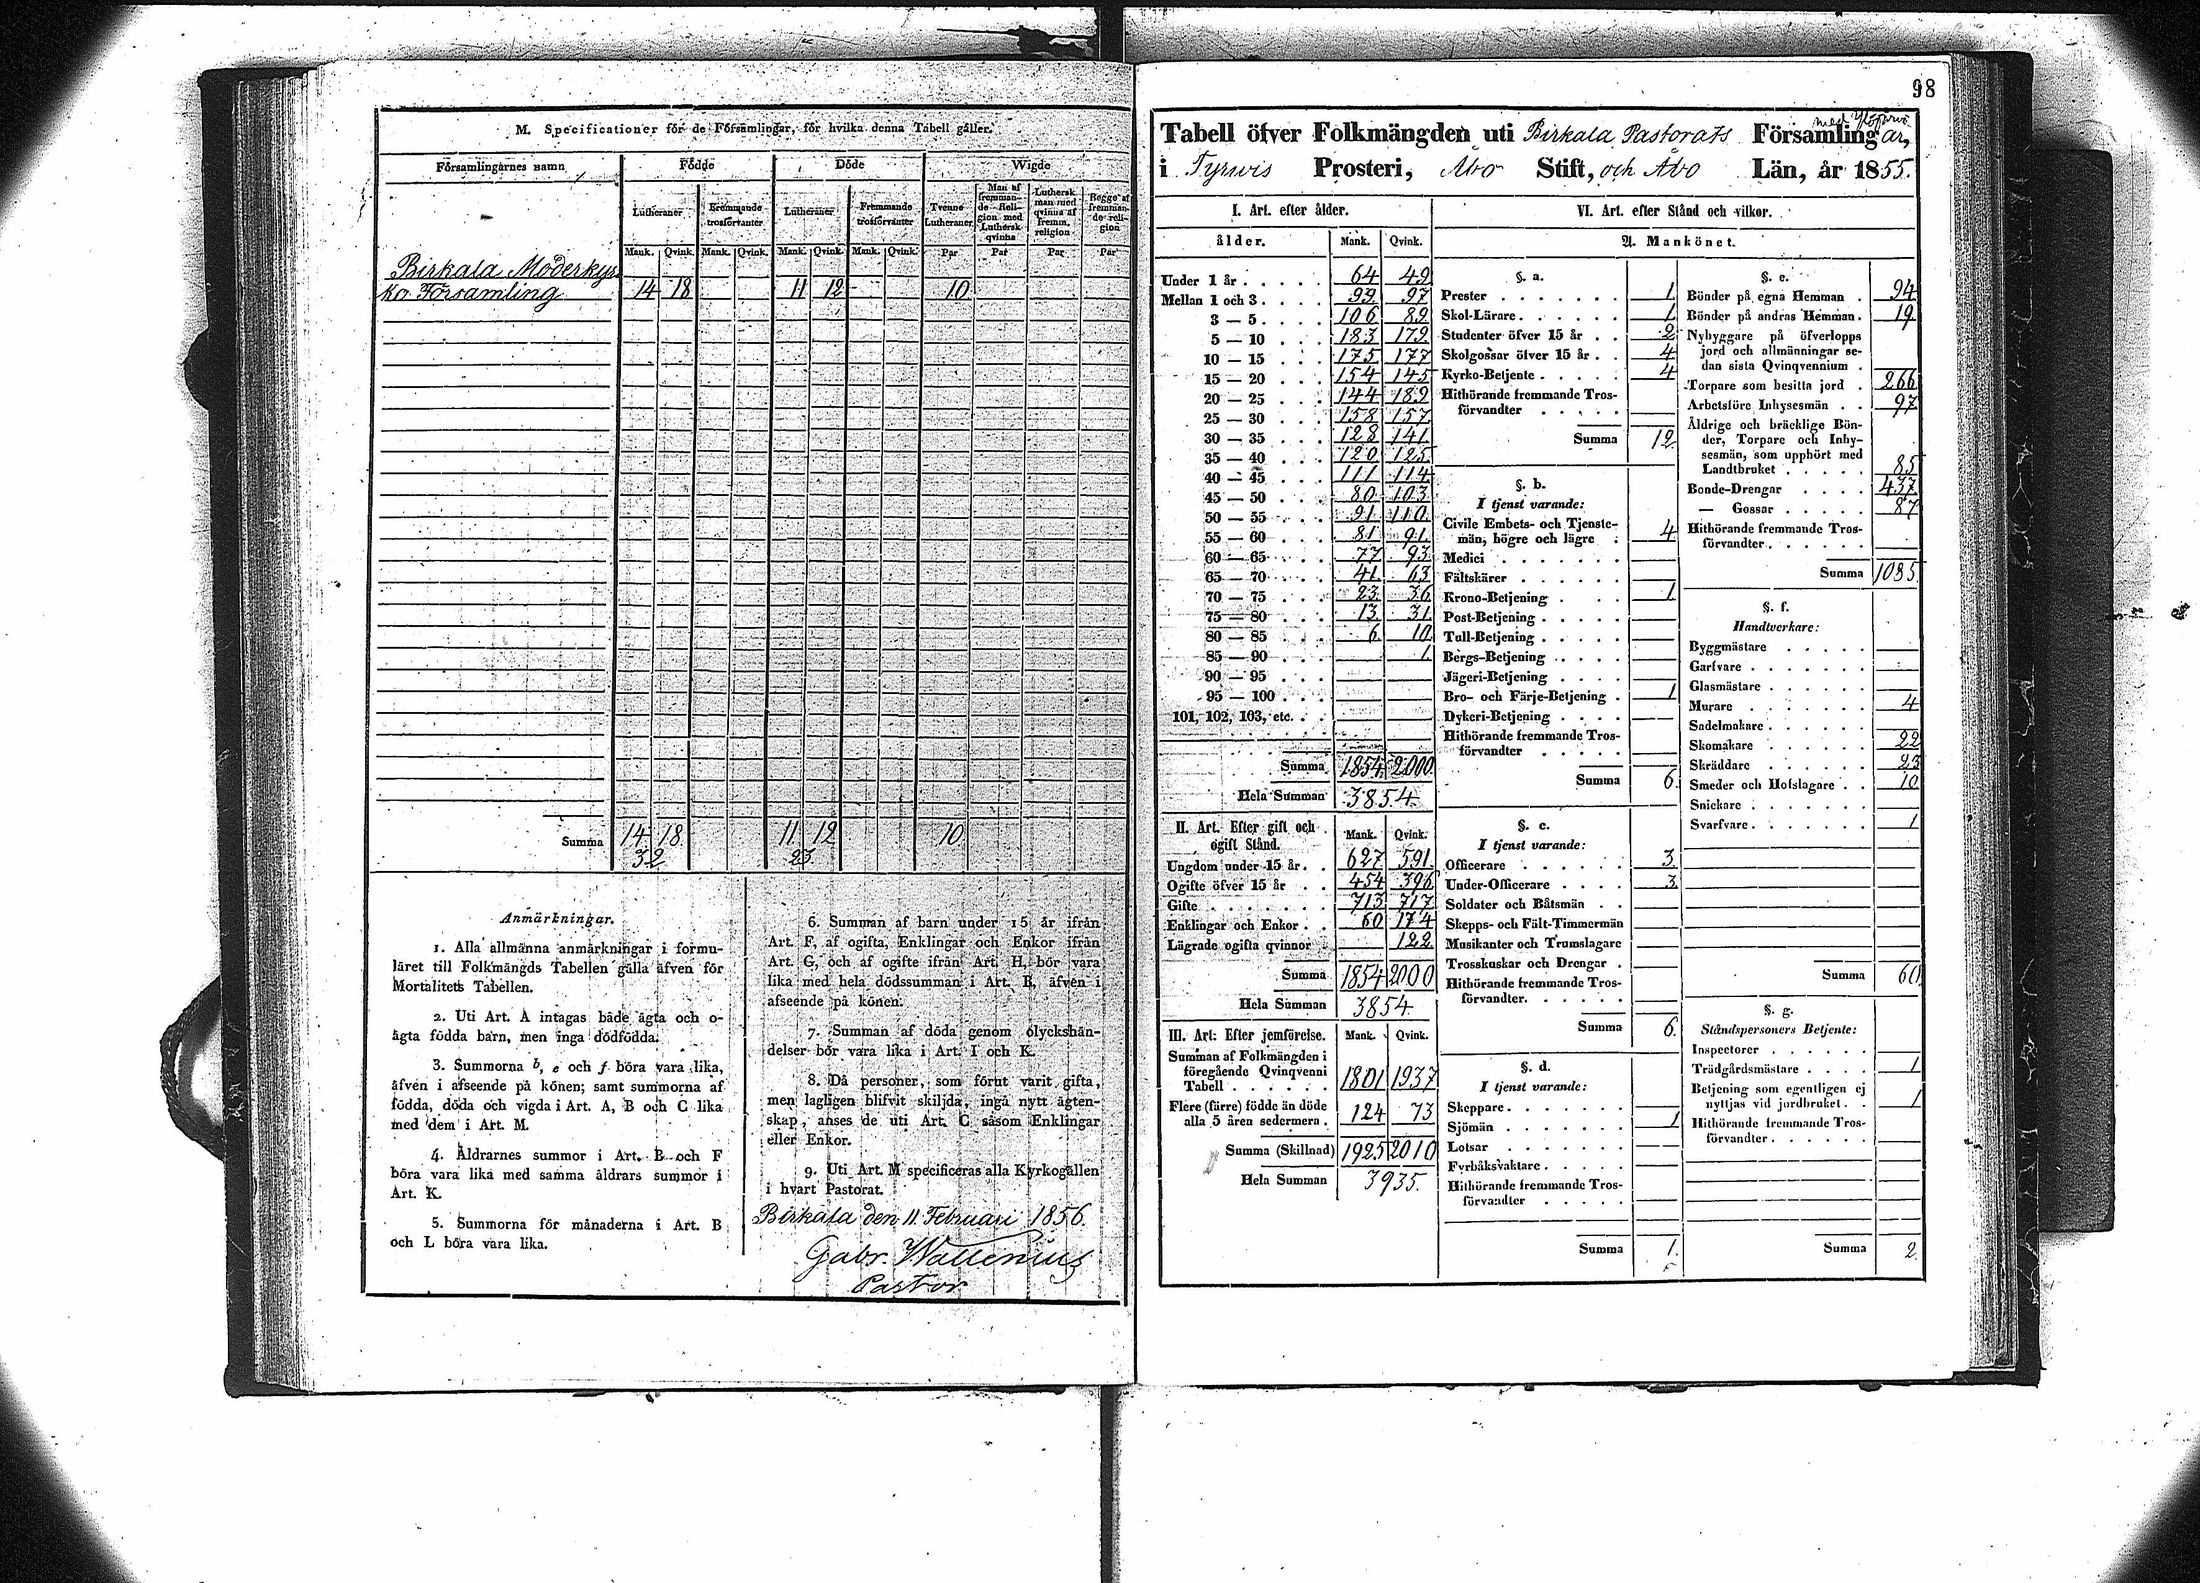 M. Specificationer för de Församlingar, för hvilka denna Tabell gäller.
Församlingarnes namn
Födde
Döde
Wigde
Lutheraner
Fremmande trosförvanter
Lutheraner
Fremmande trosförvanter
Tvenne Lutheraner
Man af fremmande Religion med Luthersk qvinna
Luthersk man med qvinna af fremm. religion
Begge af fremmande religion
Mank. Qvink. Mank. Qvink. Mank. Qvink. Mank. Qvink. Par Par Par Par
Birkala Moderkyr
ko Församling 14 18 11 12 10
Summa 14 18 11 12 10
32 23
Anmärkningar.
1. Alla allmänna anmärkningar i formu-
läret till Folkmängds Tabellen gälla äfven för
Mortalitets Tabellen.
2. Uti Art. A intagas både ägta och o-
ägta födda barn, men inga dödfödda.
3. Summorna b, e och f böra vara lika,
äfven i afseende på könen; samt summorna af
födda, döda och vigda i Art. A, B och C lika
med dem i Art. M.
4. Åldrarnes summor i Art. B och F
böra vara lika med samma åldrars summor i
Art. K.
5. Summorna för månaderna i Art. B
och L böra vara lika.
6. Summan af barn under 15 år ifrån
Art. F, af ogifta, Enklingar och Enkor ifrån
Art. G, och af ogifte ifrån Art. H, bör vara
lika med hela dödssumman i Art. B, äfven i
afseende på könen.
7. Summan af döda genom olyckshän-
delser bör vara lika i Art. I och K.
8. Då personer, som förut varit gifta,
men lagligen blifvit skiljda, ingå nytt ägten-
skap, anses de uti Art. C såsom Enklingar
eller Enkor.
9. Uti Art. M specificeras alla Kyrkogällen
i hvart Pastorat.
Birkala den 11 Februari 1856.
Gabr. Wallenius
Pastor
98
Tabell öfver Folkmängden uti Birkala Pastorats Församlingar,
i Tyrwis Prosteri, Åbo Stift, och Åbo Län, år 1855.
I. Art. efter ålder.
ålder. Mank. Qvink.
Under 1 år 64 49
Mellan 1 och 3 99 97
3 — 5 106 89
5 — 10 183 179
10 — 15 175 177
15 — 20 154 145
20 — 25 144 189
25 — 30 158 157
30 — 35 128 141
35 — 40 120 125
40 — 45 111 114
45 — 50 80 103
50 — 55 91 110
55 — 60 81 91
60 — 65 77 93
65 — 70 41 63
70 — 75 23 36
75 — 80 13 31
80 — 85 6 10
85 — 90 1
90 — 95
95 — 100
101, 102, 103, etc.
Summa 1854 2000
Hela Summan 3854
II. Art. Efter gift och
ogift Stånd. Mank. Qvink.
Ungdom under 15 år 627 591
Ogifte öfver 15 år 454 396
Gifte 713 717
Enklingar och Enkor 60 174
Lägrade ogifta qvinnor 122
Summa 1854 2000
Hela Summan 3854
III. Art. Efter jemförelse. Mank. Qvink.
Summan af Folkmängden i
föregående Qvinqvenni
Tabell 1801 1937
Flere (färre) födde än döde
alla 5 åren sedermera 124 73
Summa (Skillnad) 1925 2010
Hela Summan 3935.
VI. Art. efter Stånd och vilkor.
A. Mankönet.
§. a.
Prester 1
Skol-Lärare 1
Studenter öfver 15 år 2
Skolgossar öfver 15 år 4
Kyrko-Betjente 4
Hithörande fremmande Tros-
förvandter
Summa 12
§. b.
I tjenst varande:
Civile Embets- och Tjenste-
män, högre och lägre 4
Medici
Fältskärer
Krono-Betjening 1
Post-Betjening
Tull-Betjening
Bergs-Betjening
Jägeri-Betjening
Bro- och Färje-Betjening 1
Dykeri-Betjening
Hithörande fremmande Tros-
förvandter
Summa 6
§. c.
I tjenst varande:
Officerare 3
Under-Officerare 3
Soldater och Båtsmän
Skepps- och Fält-Timmermän
Musikanter och Trumslagare
Trosskuskar och Drengar
Hithörande fremmande Tros-
förvandter
Summa 6
§. d.
I tjenst varande:
Skeppare
Sjömän 1
Lotsar
Fyrbåksvaktare
Hithörande fremmande Tros-
förvandter
Summa 1
§. e.
Bönder på egna Hemman 94
Bönder på andras Hemman 19
Nybyggare på öfverlopps
jord och allmänningar se-
dan sista Qvinqvennium
Torpare som besitta jord 266
Arbetsföre Inhysesmän 97
Åldrige och bräcklige Bön-
der, Torpare och Inhy-
sesmän, som upphört med
Landtbruket 85
Bonde-Drengar 437
— Gossar 87
Hithörande fremmande Tros-
förvandter
Summa 1085
§. f.
Handtverkare:
Byggmästare
Garfvare
Glasmästare
Murare 4
Sadelmakare
Skomakare 22
Skräddare 23
Smeder och Hofslagare 10
Snickare
Svarfvare 1
Summa 60
§. g.
Ståndspersoners Betjente:
Inspectorer
Trädgårdsmästare 1
Betjening som egentligen ej
nyttjas vid jordbruket 1
Hithörande fremmande Tros-
förvandter
Summa 2